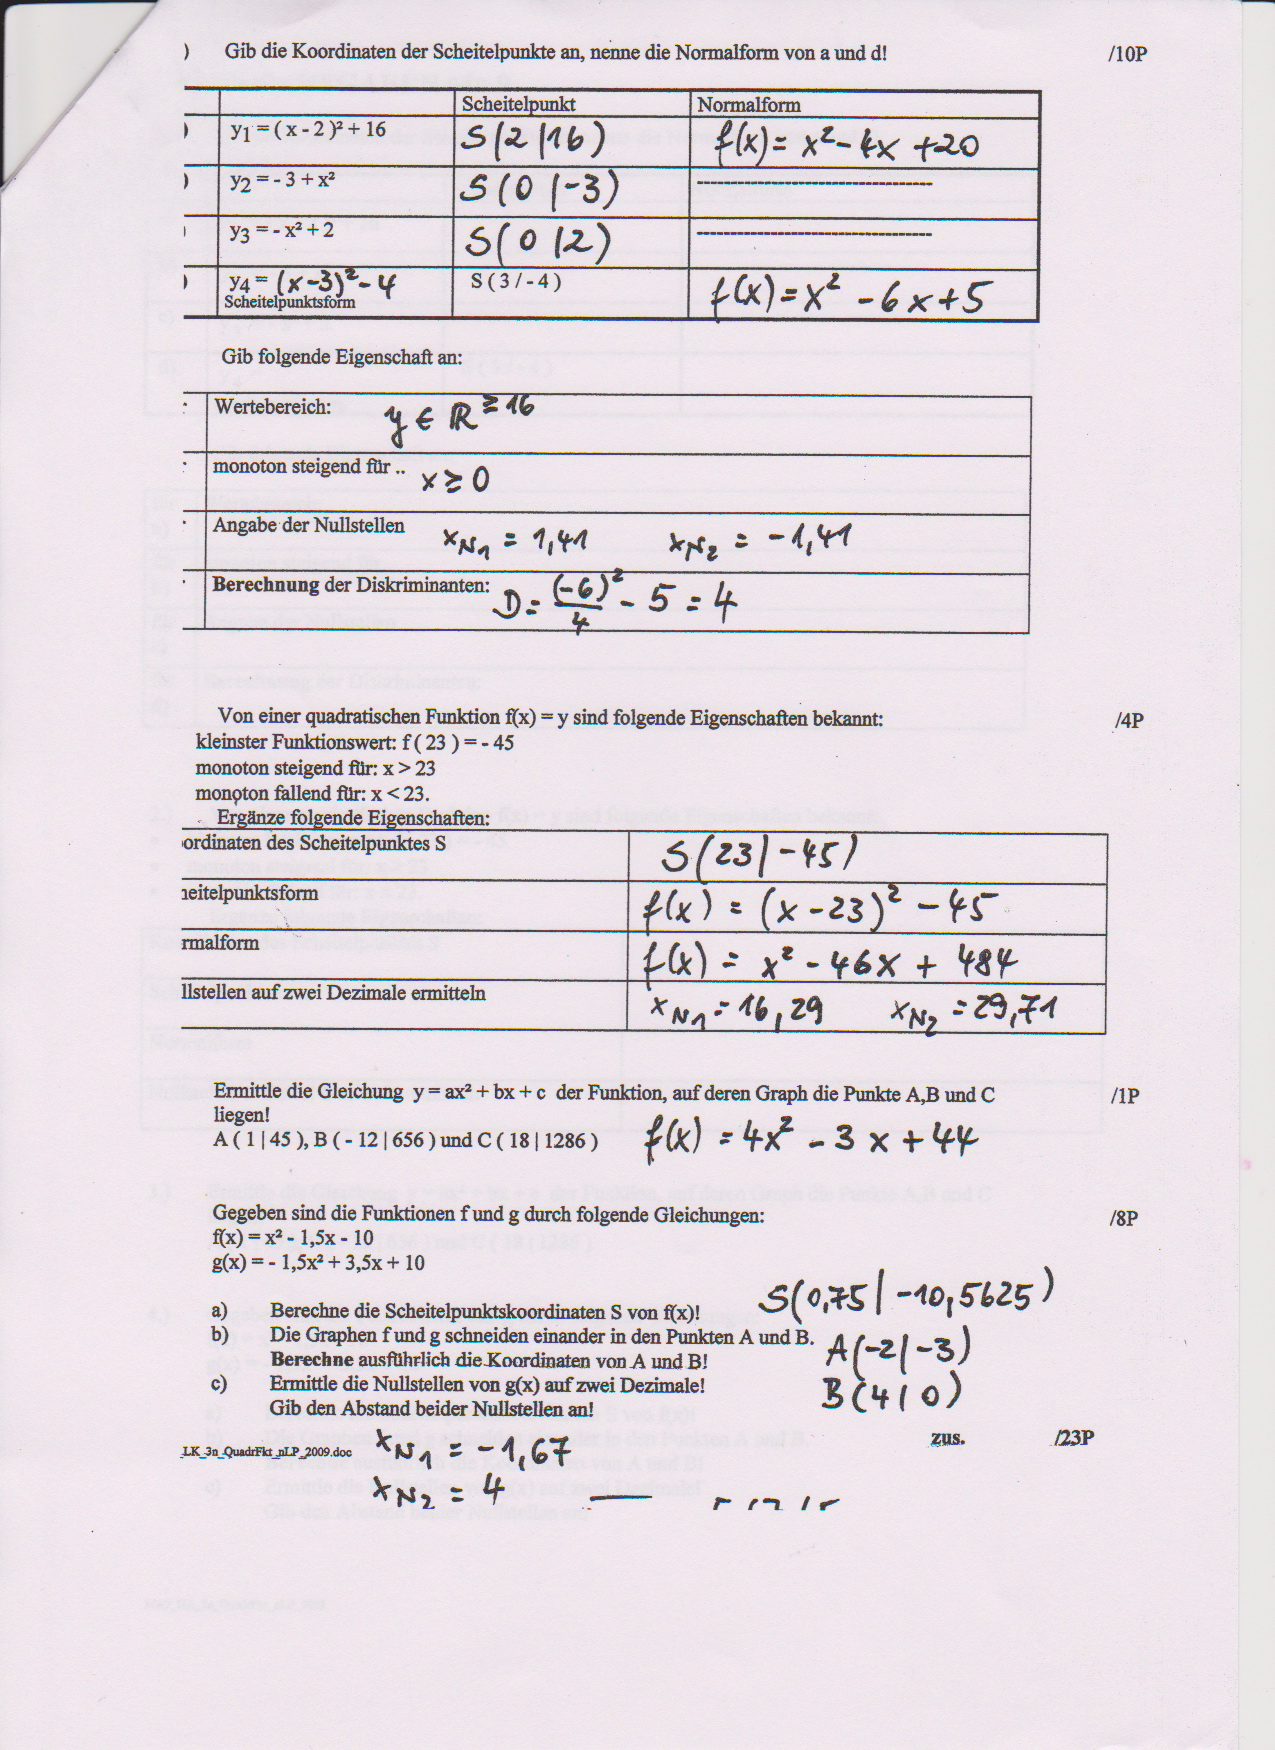 ) Gib die Koordinaten der Scheitelpunkte an, nenne die Normalform von a und d! /10P
Scheitelpunkt Normalform
) y1 = ( x - 2 )² + 16 S(2|16) f(x) = x² - 4x + 20
) y2 = - 3 + x² S(0|-3) --------------------------------
) y3 = - x² + 2 S(0|2) --------------------------------
) y4 = (x-3)² - 4 S ( 3 / - 4 ) f(x) = x² - 6x + 5
Scheitelpunktsform
Gib folgende Eigenschaft an:
Wertebereich: y ∈ ℝ ≥ 16
monoton steigend für .. x ≥ 0
Angabe der Nullstellen xN1 = 1,41 xN2 = -1,41
Berechnung der Diskriminanten: D = (-6)²/4 - 5 = 4
Von einer quadratischen Funktion f(x) = y sind folgende Eigenschaften bekannt: /4P
kleinster Funktionswert: f ( 23 ) = - 45
monoton steigend für: x > 23
monoton fallend für: x < 23.
Ergänze folgende Eigenschaften:
ordinaten des Scheitelpunktes S S(23|-45)
heitelpunktsform f(x) = (x-23)² - 45
rmalform f(x) = x² - 46x + 484
llstellen auf zwei Dezimale ermitteln xN1 = 16,29 xN2 = 29,71
Ermittle die Gleichung y = ax² + bx + c der Funktion, auf deren Graph die Punkte A,B und C /1P
liegen!
A ( 1 | 45 ), B ( - 12 | 656 ) und C ( 18 | 1286 ) f(x) = 4x² - 3x + 44
Gegeben sind die Funktionen f und g durch folgende Gleichungen: /8P
f(x) = x² - 1,5x - 10
g(x) = - 1,5x² + 3,5x + 10
a) Berechne die Scheitelpunktskoordinaten S von f(x)! S(0,75|-10,5625)
b) Die Graphen f und g schneiden einander in den Punkten A und B. A(-2|-3)
Berechne ausführlich die Koordinaten von A und B!
c) Ermittle die Nullstellen von g(x) auf zwei Dezimale! B(4|0)
Gib den Abstand beider Nullstellen an!
zus. /23P
_LK_3n_QuadrFkt_nLP_2009.doc xN1 = -1,67
xN2 = 4